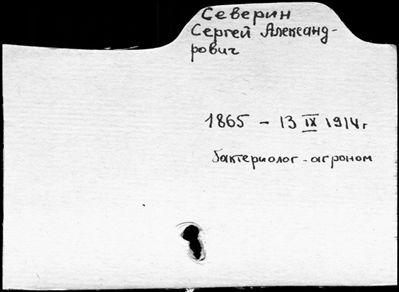 Северин
Сергей Александ-
рович
1865 - 13 IX 1914 г
бактериолог-агроном